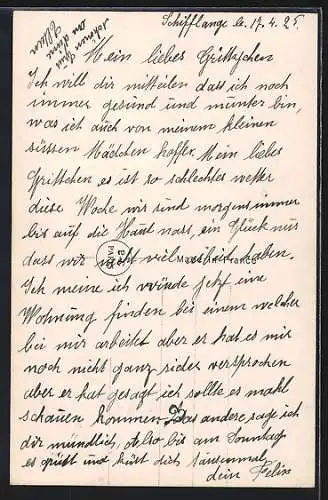 Schifflange le. 17.4.25.
schönen Gruss
an deine
Eltern
Mein liebes Grittchen
Ich will dir mitteilen dass ich noch
immer gesund und munter bin,
was ich auch von meinem kleinen
süssen Mädchen hoffe. Mein liebes
Grittchen es ist so schlechtes wetter
diese Woche wir sind morgens immer
bis auf die Haut nass, ein Glück nur
dass wir nicht viel weit haben.
Made in France
PARIS
Ich meine ich würde jetz eine
Wohnung finden bis einem welcher
bei mir arbeitet aber er hat es mir
noch nicht ganz sicher versprochen
aber er hat gesagt ich sollte es mahl
schauen kommen. Das andere sage ich
dir mündlich. Also bis am Sonntag
es grüst und küst dich tausenmal
dein Felix